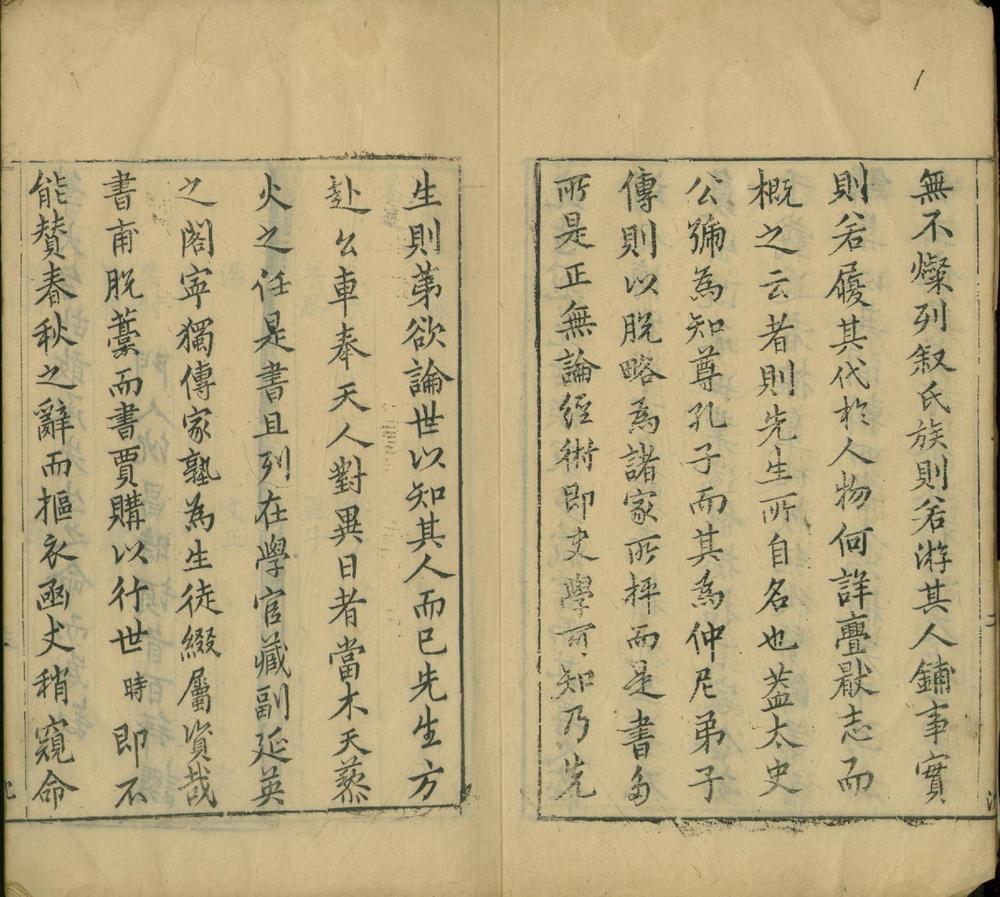 無不燦列叙氏族則若游其人鋪事實
則若履其代於人物何詳亹厭志而
概之云者則先生所自名也葢太史
公號為知尊孔子而其為仲尼弟子
傳則以脫略為諸家所抨而是書多
所是正無論經術即史學可知乃先
生則第欲論世以知其人而已先生方
赴公車奉天人對異日者當木天藜
火之任是書且列在學官藏副延英
之閣寧獨傳家塾為生徒綴屬資哉
書甫脫藁而書賈購以行世時即不
能贊春秋之辭而摳衣函丈稍窺命